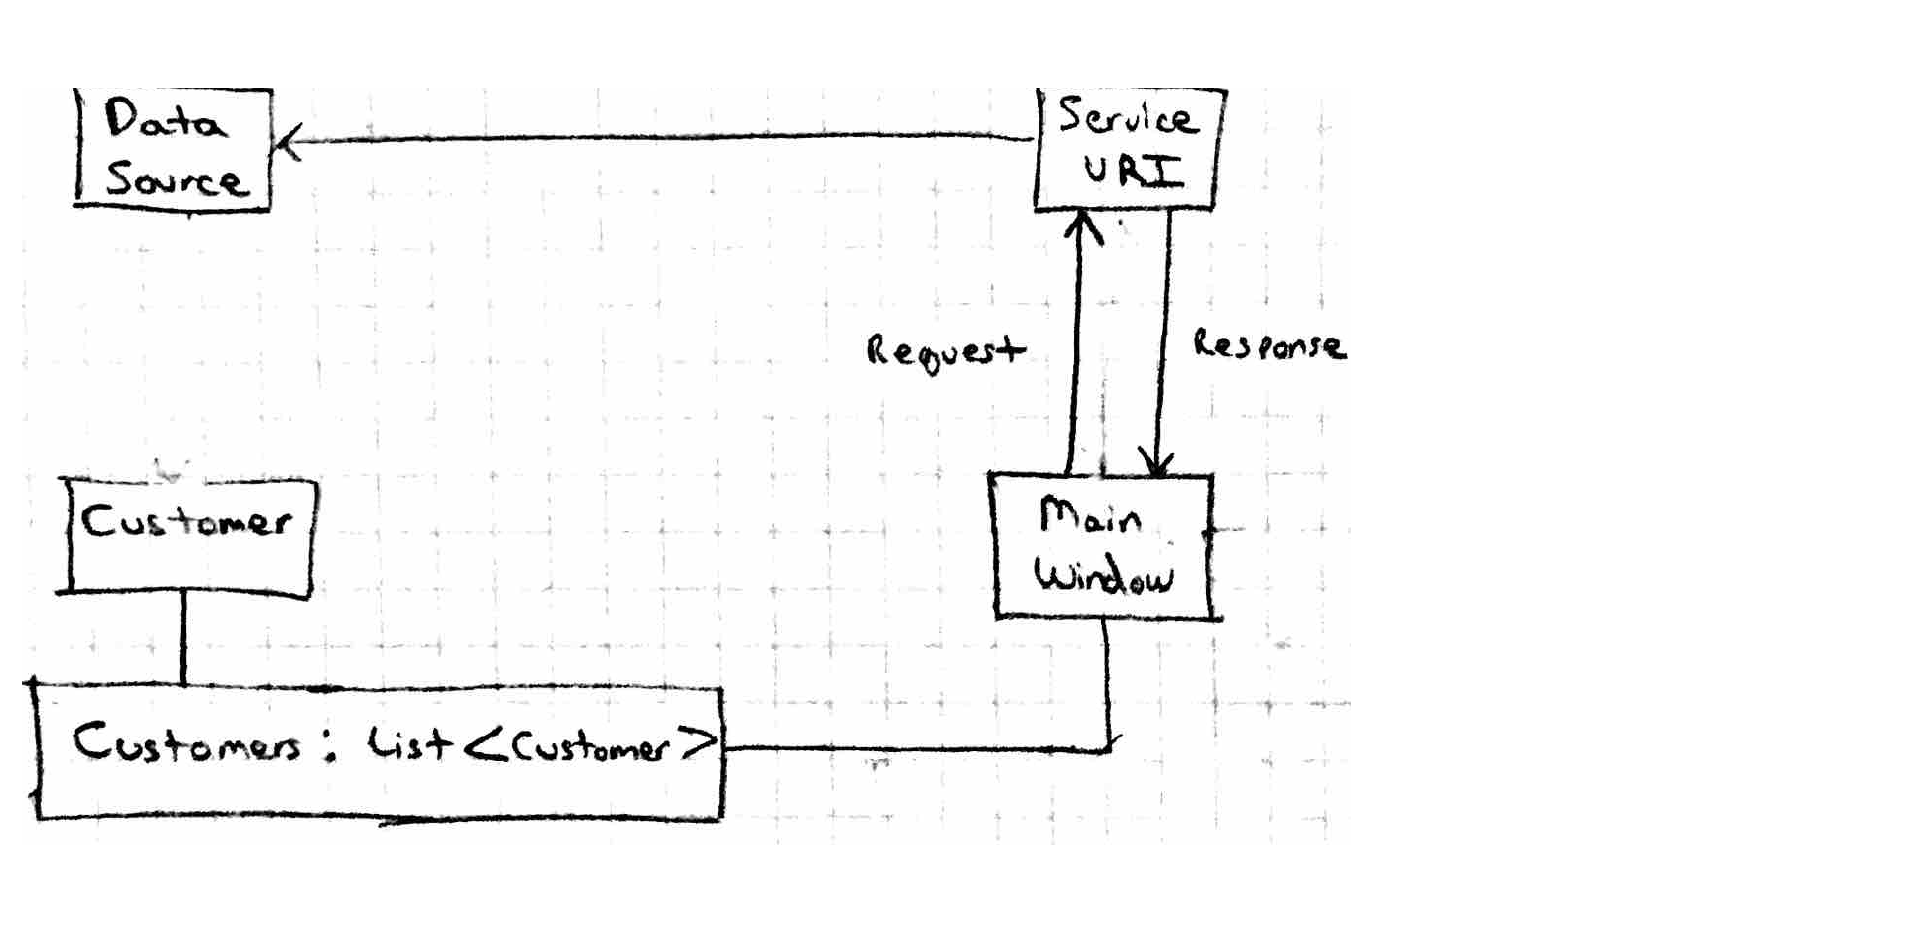 Data
Source
Service
URI
Request
Response
Customer
Main
Window
Customers: List<Customer>